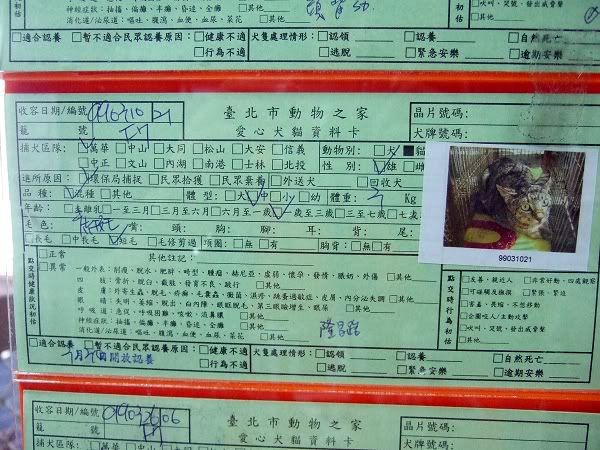 神經症狀：抽搐、偏癱、半癱、昏迷、全癱 □其他
消化道/泌尿道：嘔吐、腹瀉、血便、血尿、菜花 □其他
□吠叫、哭號、發出威脅聲
□其他
初估
□適合認養 □暫不適合民眾認養原因：□健康不適 □行為不適
犬隻處理情形：□認領 □認養 □自然死亡
□逃脫 □緊急安樂 □逾期安樂
收容日期/編號 990310 21
籠 號
臺北市動物之家
愛心犬貓資料卡
晶片號碼：
犬牌號碼：
捕犬區隊：□萬華 □中山 □大同 □松山 □大安 □信義
□中正 □文山 □內湖 □南港 □士林 □北投
動物別：□犬 ■貓
性 別：□雄 □雌
進所原因：□環保局捕捉 □民眾拾獲 □民眾棄養 □外送犬 □回收犬
品 種：□混種 □其他
體 型：□大 □中 □小 □幼 體重： Kg
年齡：□未離乳 □一至三月 □三至六月 □六月至一歲 □一至三歲 □三至七歲 □七歲
毛 色： 頭： 胸： 腳： 耳： 背： 尾：
□長毛 □中長毛 □短毛 □毛修剪過 項圈：□無 □有 胸背：□無 □有
99031021
點交時健康狀況初估
□正常
□異常
其他註記：
一般外表：削瘦、脫水、肥胖、畸型、腫瘤、赫尼亞、虛弱、懷孕、發情、脹奶、外傷 □其他
四 肢：骨折、脫臼、截肢、發育不良、跛行 □其他
皮 膚：外寄生蟲、脫毛、疥癬、毛囊蟲、黴菌、濕疹、跳蚤過敏症、皮屑、內分泌失調 □其他
眼 睛：失明、萎縮、脫出、白內障、眼瞼脫毛、第三眼瞼增生、眼屎 □其他
呼 吸 道：急促、呼吸困難、咳嗽、流鼻膿 □其他
神經症狀：抽搐、偏癱、半癱、昏迷、全癱 □其他
消化道/泌尿道：嘔吐、腹瀉、血便、血尿、菜花 □其他
隆昌路
點交時行為初估
□友善、親近人 □非常好動、四處觀察
□可碰觸及撫摸 □緊張、緊迫
□害羞、畏縮、不想移動
□企圖咬人/主動攻擊
□吠叫、哭號、發出威脅聲
□其他
□適合認養 □暫不適合民眾認養原因：□健康不適
□行為不適
開放認養
犬隻處理情形：□認領 □認養 □自然死亡
□逃脫 □緊急安樂 □逾期安樂
收容日期/編號 990326 06
籠 號
臺北市動物之家
愛心犬貓資料卡
晶片號碼：
犬牌號碼：
捕犬區隊：□萬華 □中山 □大同 □松山 □大安 □信義 動物別：□犬 □貓